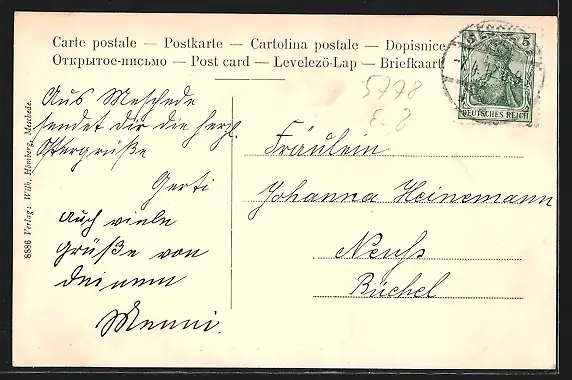 Carte postale — Postkarte — Cartolina postale — Dopisnice
Открытое-письмо — Post card — Levelező-Lap — Briefkaart
5778
8.8
5
DEUTSCHES REICH
Aus Meschede
sendet dir die herzl.
Ostergrüße
Gerti
Auch viele
Grüße von
deinem
Menni.
Fräulein
Johanna Heinemann
Neuß
Büchel
8886 Verlag: Wilh. Hömberg, Meschede.